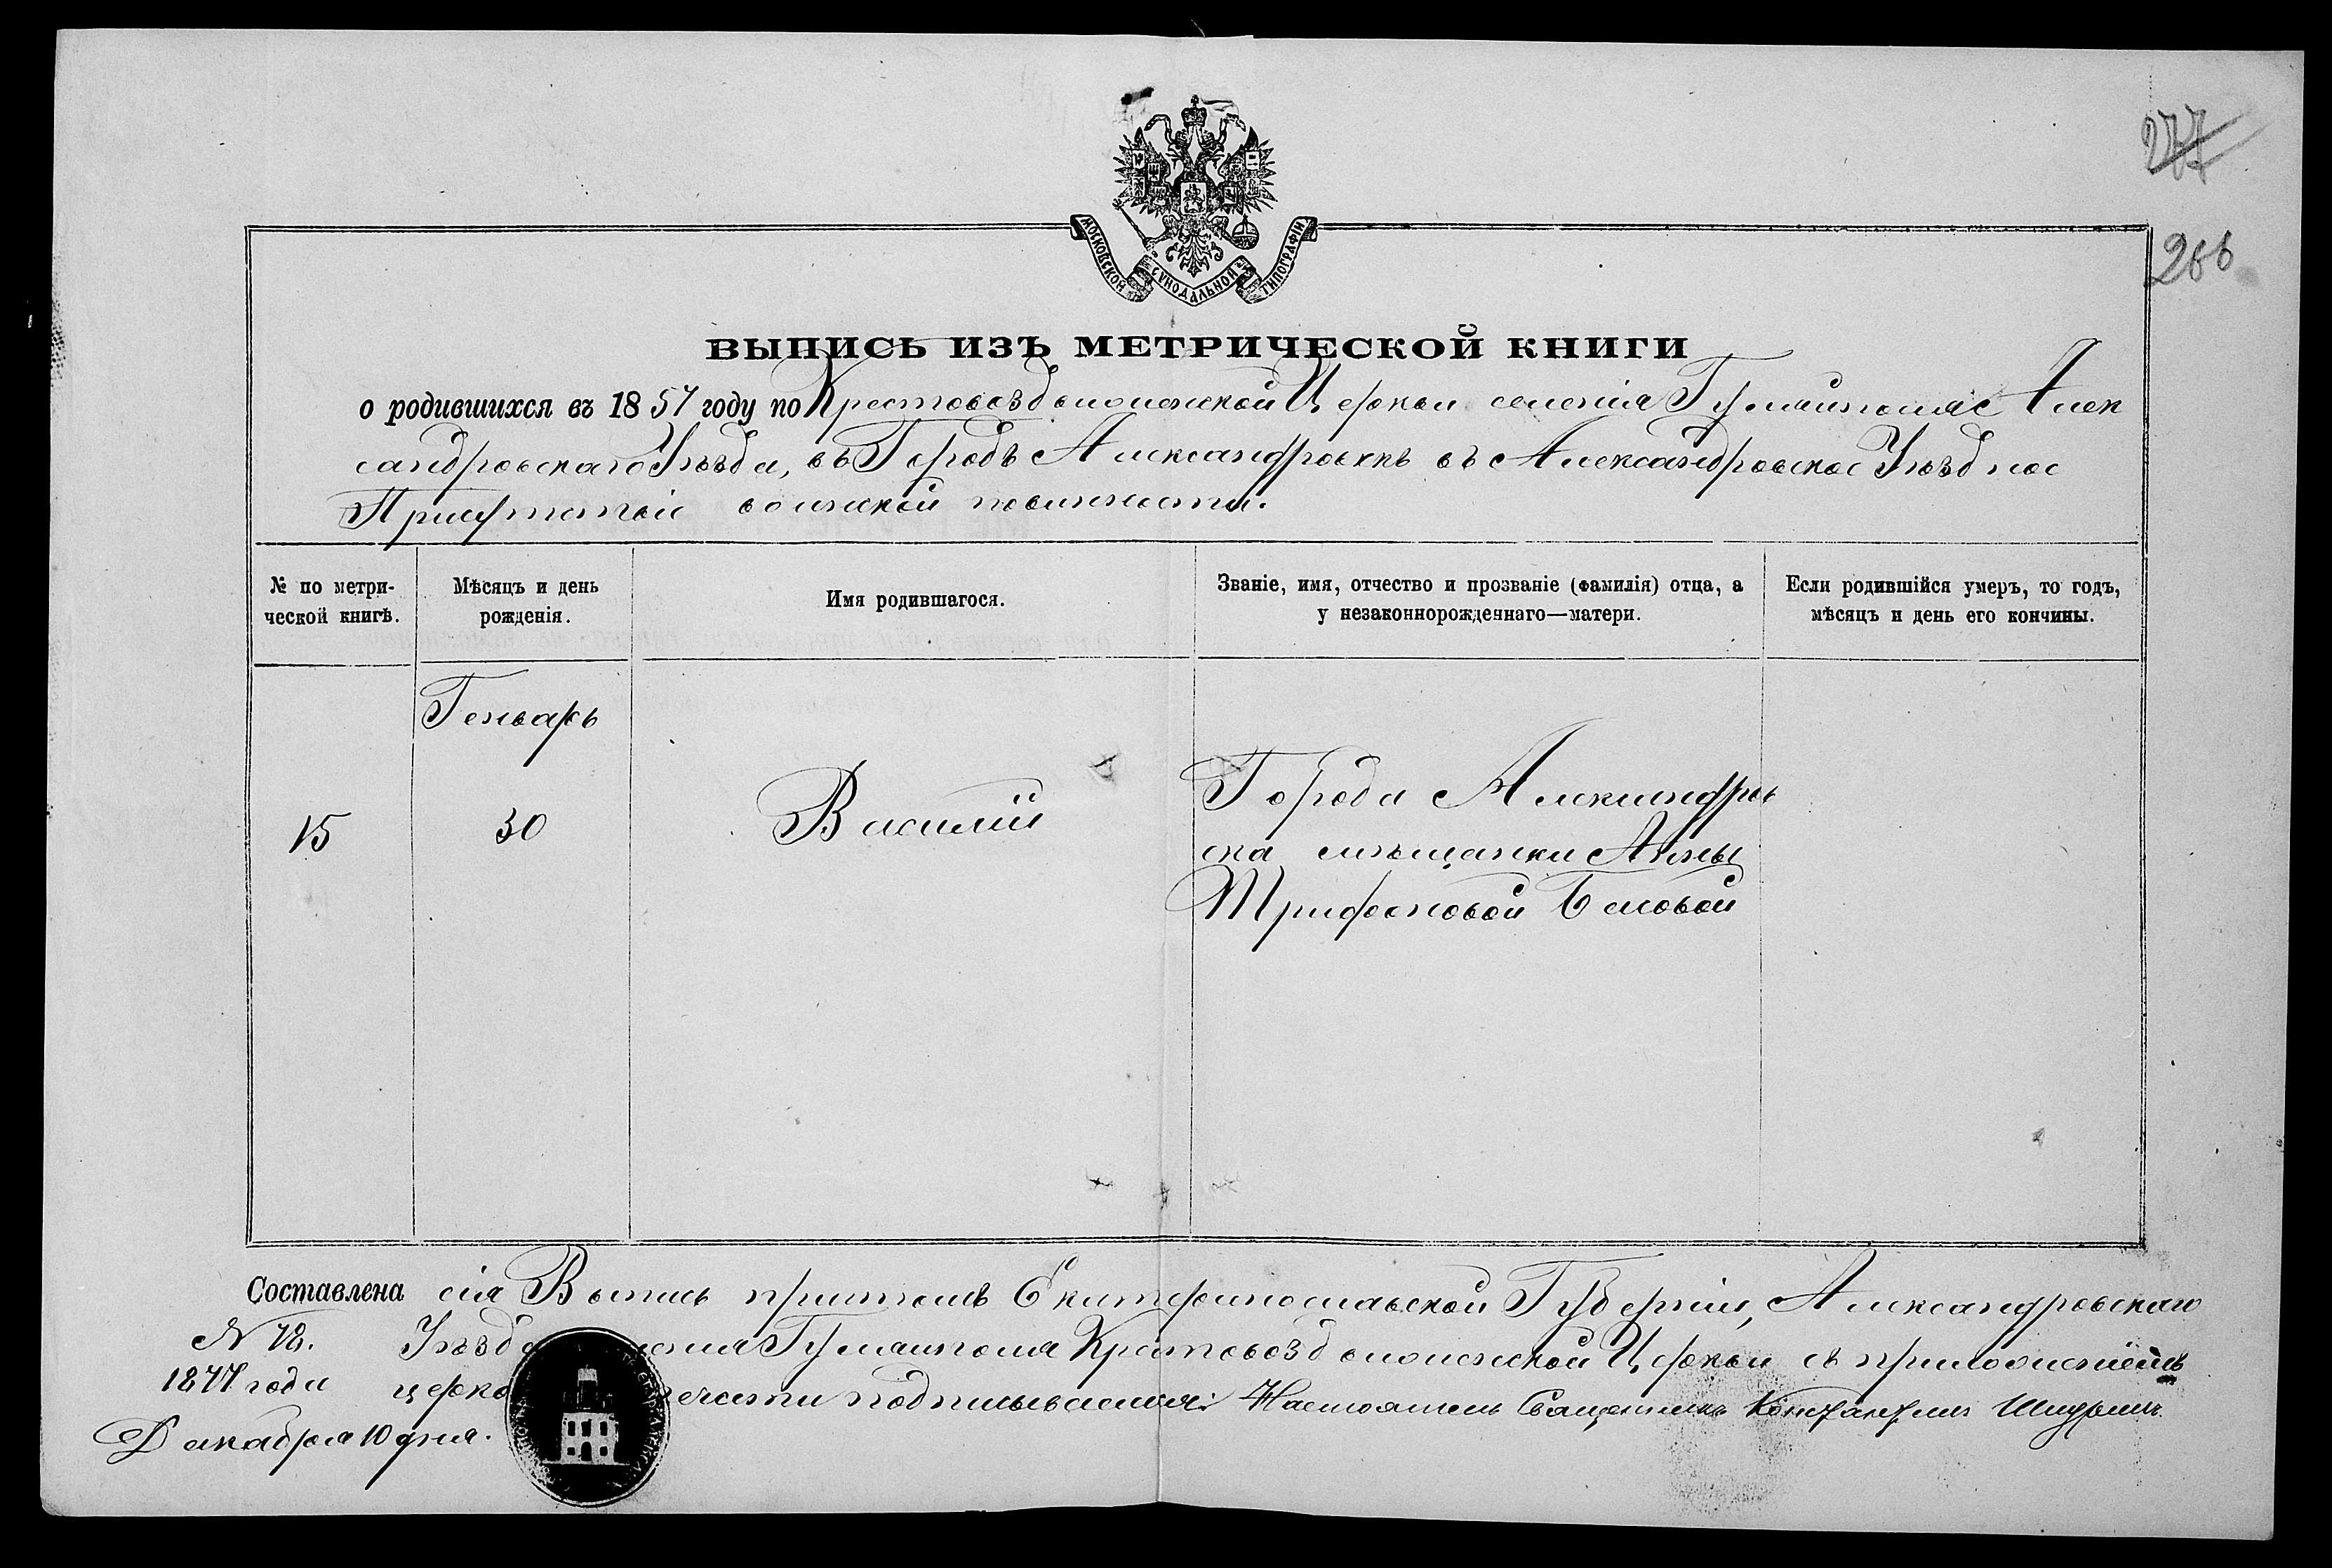 277
266
МОСКОВСКОЙ СѴНОДАЛЬНОЙ ТИПОГРАФІИ
ВЫПИСЬ ИЗЪ МЕТРИЧЕСКОЙ КНИГИ
о родившихся въ 1857 году по Крестовоздвиженской Церкви селенія Гуляйполя Алек
сандровскаго Уѣзда, въ Городѣ Александровкѣ въ Александровское Уѣздное
воинской повинности.
№ по метри-
ческой книгѣ.
Мѣсяцъ и день
рожденія.
Имя родившагося.
Званіе, имя, отчество и прозваніе (фамилія) отца, а
у незаконнорожденнаго—матери.
Если родившійся умеръ, то годъ,
мѣсяцъ и день его кончины.
Генварь
15
30
Василій
Города Александров
ска мѣщанки Анны
Трифоновой Беловой
Составлена сія Выпись причтомъ Екатеринославской Губерніи, Александровскаго
N 78. Уѣзда Гуляйполя Крестовоздвиженской Церкви съ приложеніемъ
1877 года подписываемся: Настоятель Священникъ Константинъ
Декабря 10 дня.